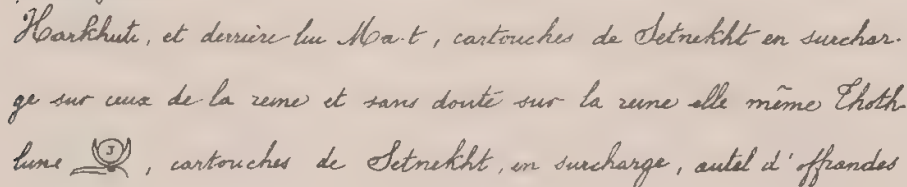 Harkhuti, et derrière lui Ma-t, cartouches de Setnekht en surchar-
ge sur ceux de la reine et sans doute sur la reine elle même Thoth-
lune, cartouches de Setnekht, en surcharge, autel d'offrandes